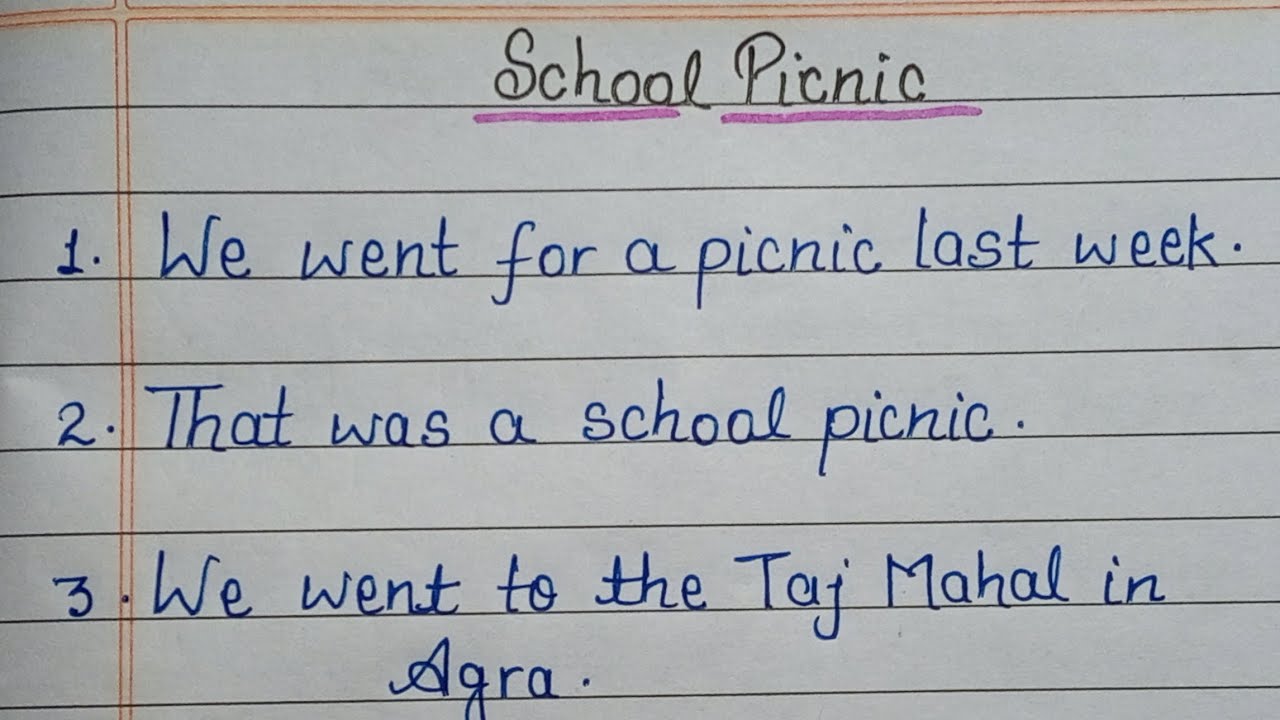 School Picnic
1. We went for a picnic last week.
2. That was a school picnic.
3. We went to the Taj Mahal in
Agra.